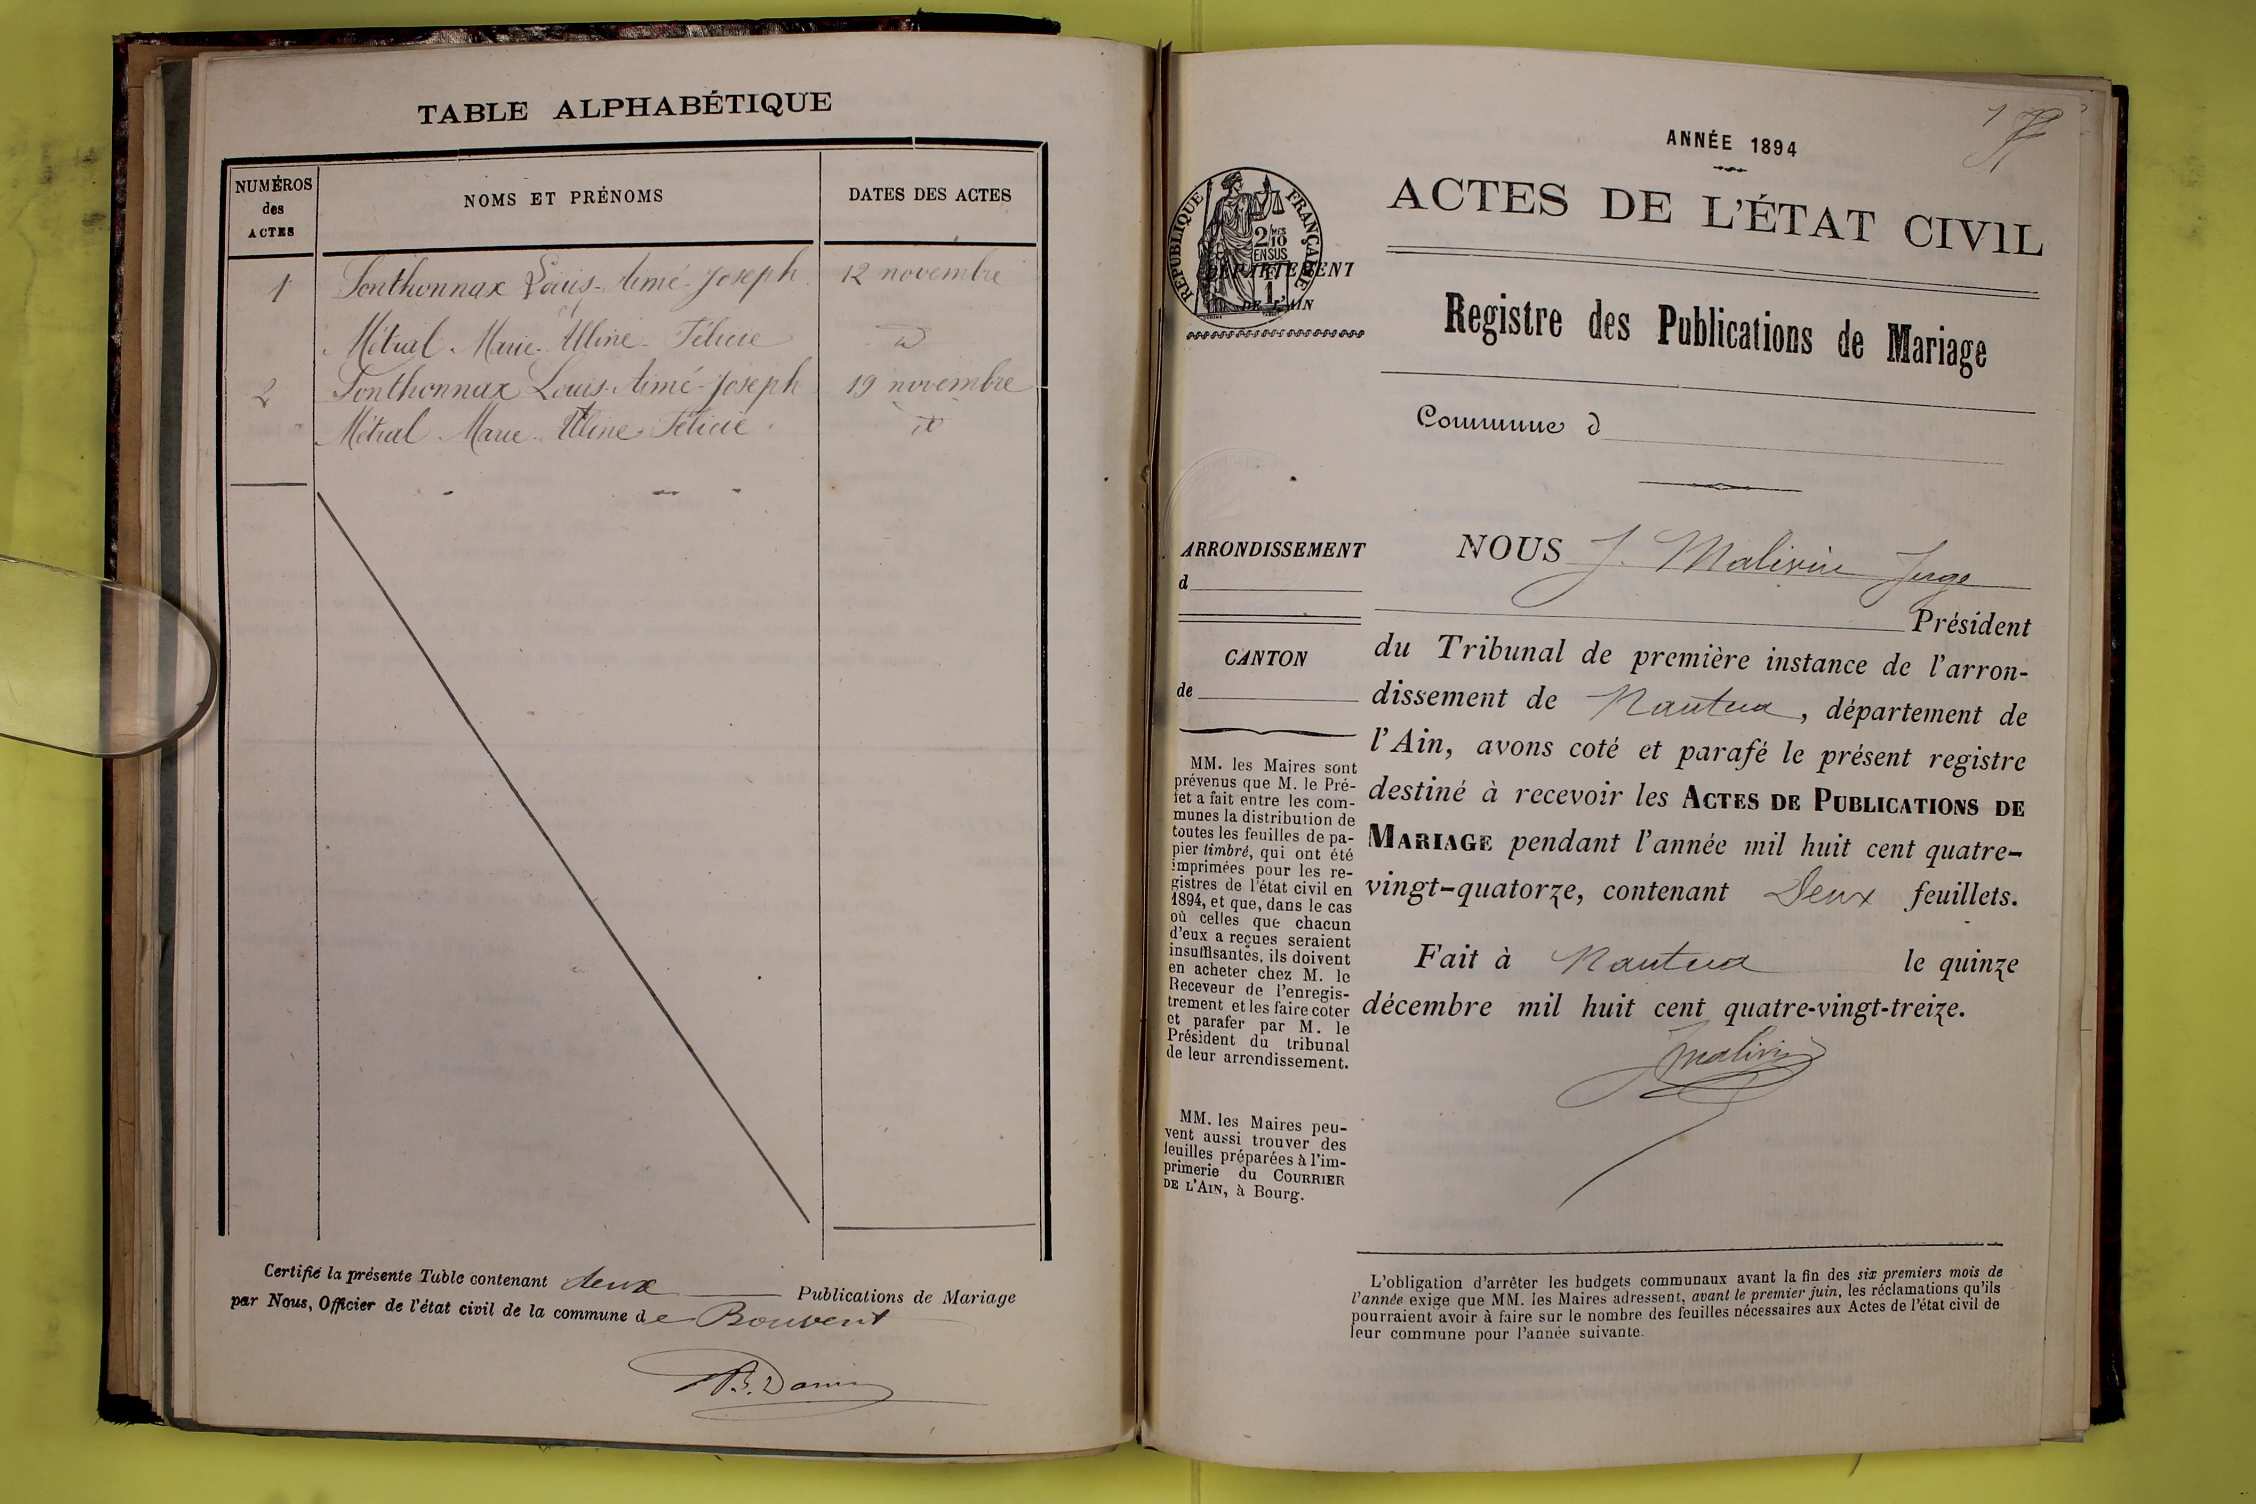 TABLE ALPHABÉTIQUE
NUMÉROS
des
ACTES
NOMS ET PRÉNOMS
DATES DES ACTES
1 Sonthonnax Louis-Aimé-Joseph 12 novembre
Métral Marie- -Félicie
2 Sonthonnax Louis-Aimé-Joseph 19 novembre
Métral Marie- Félicie
Certifié la présente Table contenant deux Publications de Mariage
par Nous, Officier de l'état civil de la commune de Bouvent
ANNÉE 1894
ACTES DE L'ÉTAT CIVIL
RÉPUBLIQUE FRANÇAISE
2/10
MES
EN SUS
1
DÉPARTEMENT
DE L'AIN
Registre des Publications de Mariage
Commune d
ARRONDISSEMENT
d
CANTON
de
MM. les Maires sont
prévenus que M. le Pré-
fet a fait entre les com-
munes la distribution de
toutes les feuilles de pa-
pier timbré, qui ont été
imprimées pour les re-
gistres de l'état civil en
1894, et que, dans le cas
où celles que chacun
d'eux a reçues seraient
insuffisantes, ils doivent
en acheter chez M. le
Receveur de l'enregis-
trement et les faire coter
et parafer par M. le
Président du tribunal
de leur arrondissement.
MM. les Maires peu-
vent aussi trouver des
feuilles préparées à l'im-
primerie du COURRIER
DE L'AIN, à Bourg.
NOUS J. Malivin Juge
Président
du Tribunal de première instance de l'arron-
dissement de Nantua, département de
l'Ain, avons coté et parafé le présent registre
destiné à recevoir les ACTES DE PUBLICATIONS DE
MARIAGE pendant l'année mil huit cent quatre-
vingt-quatorze, contenant Deux feuillets.
Fait à Nantua le quinze
décembre mil huit cent quatre-vingt-treize.
L'obligation d'arrêter les budgets communaux avant la fin des six premiers mois de
l'année exige que MM. les Maires adressent, avant le premier juin, les réclamations qu'ils
pourraient avoir à faire sur le nombre des feuilles nécessaires aux Actes de l'état civil de
leur commune pour l'année suivante.